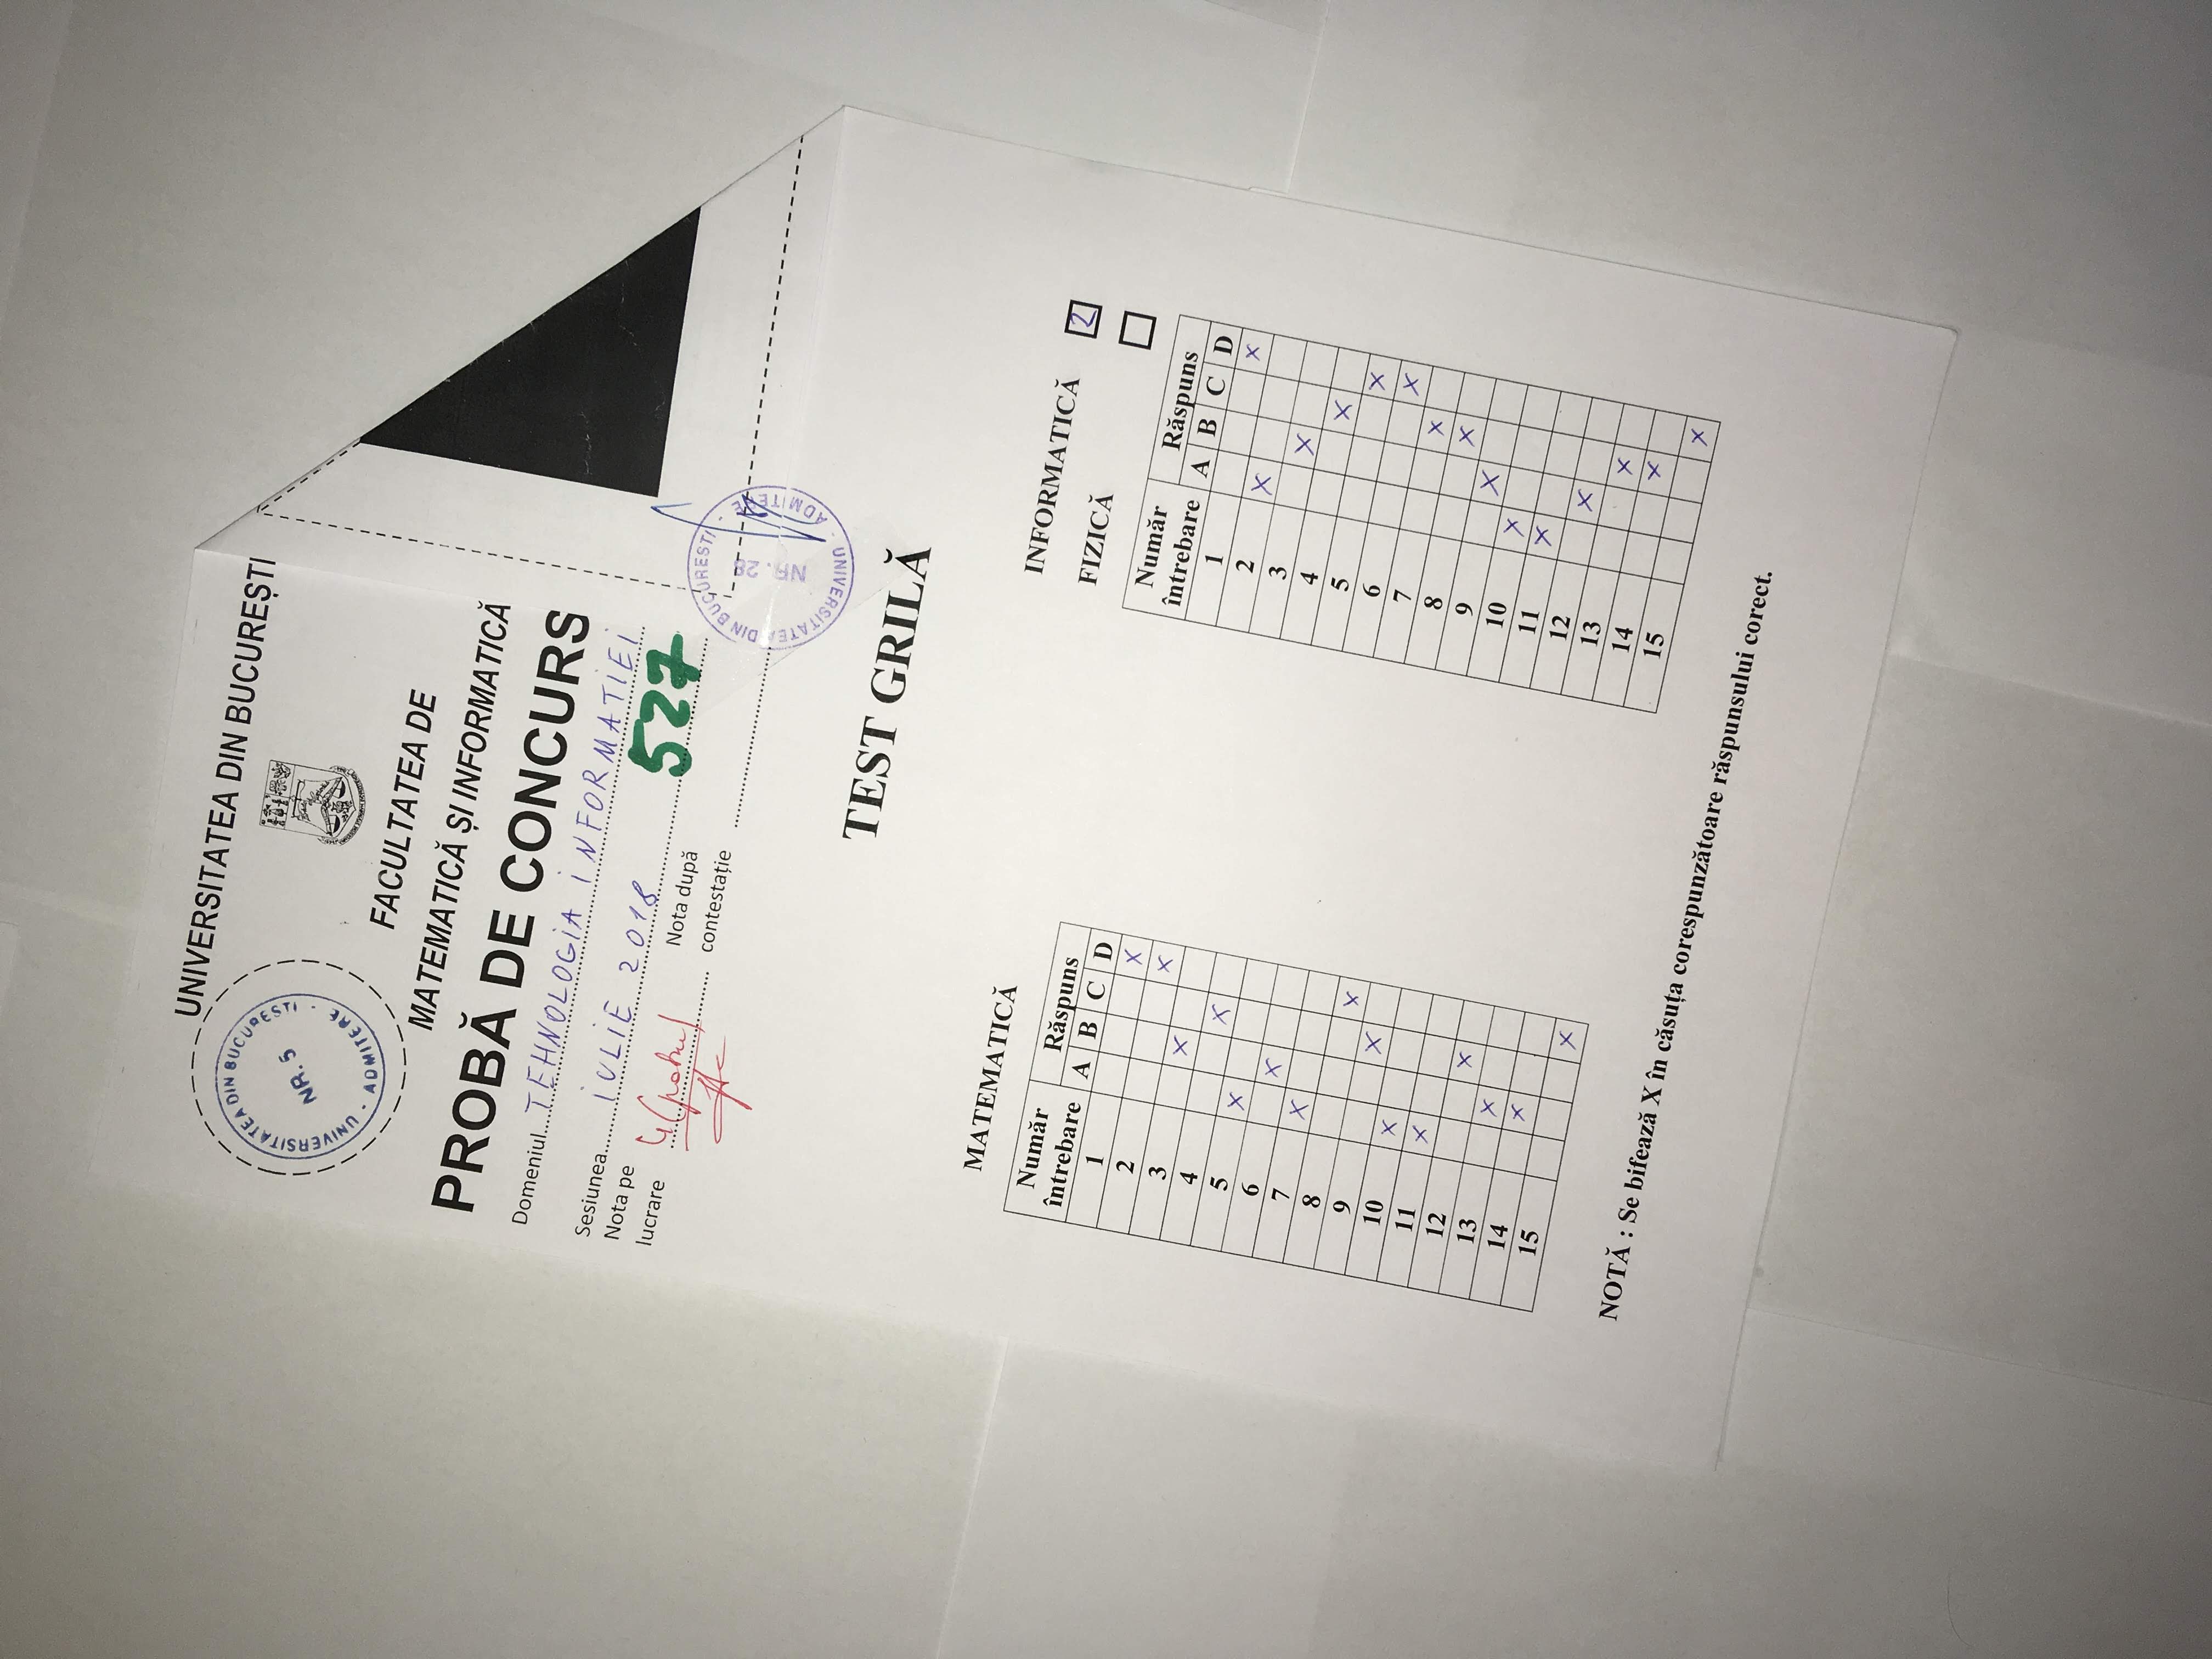 UNIVERSITATEA DIN BUCUREȘTI
UNIVERSITATEA DIN BUCURESTI - ADMITERE -
NR. 5
FACULTATEA DE
MATEMATICĂ ȘI INFORMATICĂ
PROBĂ DE CONCURS
Domeniul TEHNOLOGIA INFORMATIEI
Sesiunea IULIE 2018
527
Nota pe lucrare 4 (patru)
Nota după contestație
UNIVERSITATEA DIN BUCURESTI - ADMITERE -
NR. 28
TEST GRILĂ
MATEMATICĂ
Număr întrebare Răspuns
A B C D
1 X
2 X
3 X
4 X
5 X
6 X
7 X
8 X
9 X
10 X
11 X
12 X
13 X
14 X
15 X
INFORMATICĂ 2
FIZICĂ
Număr întrebare Răspuns
A B C D
1 X
2 X
3 X
4 X
5 X
6 X
7 X
8 X
9 X
10 X
11 X
12 X
13 X
14 X
15 X
NOTĂ : Se bifează X în căsuța corespunzătoare răspunsului corect.